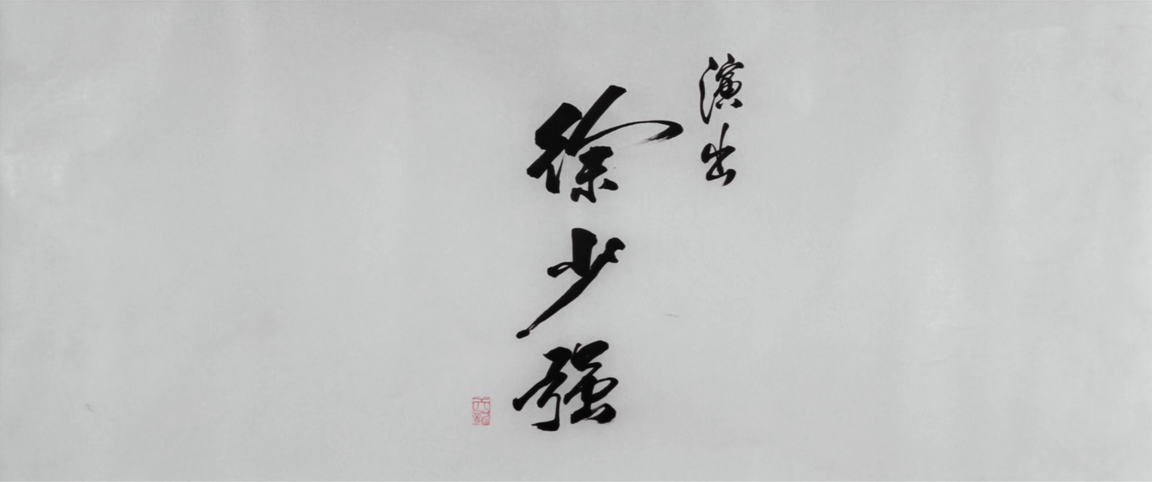 演出
徐少强